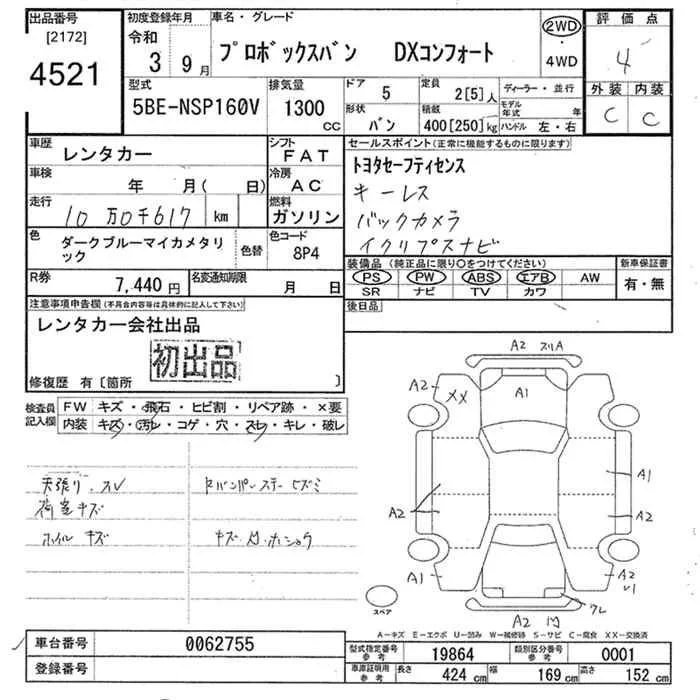 出品番号
[2172]
4521
初度登録年月
令和
3 9月
車名・グレード
プロボックスバン DXコンフォート
2WD
・
4WD
評価点
4
外装 内装
C C
型式
5BE-NSP160V
排気量
1300
CC
ドア
5
形状
バン
定員
2[5]人
積載
400[250]kg
ディーラー・並行
モデル年式 年
ハンドル 左・右
車歴
レンタカー
シフト
FAT
車検
年 月( 日)
冷房
AC
走行
10万0千617 km
燃料
ガソリン
色
ダークブルーマイカメタリック
色替
色コード
8P4
R券
7,440円
名変通知期限
月 日
セールスポイント(正常に機能するものに限ります)
トヨタセーフティセンス
キーレス
バックカメラ
イクリプスナビ
装備品(純正品に限り○をつけてください)
PS PW ABS エアB AW
SR ナビ TV カワ
新車保証書
有・無
後日品
注意事項申告欄(不具合内容等は具体的に記入して下さい)
レンタカー会社出品
初出品
修復歴 有〔箇所 〕
検査員記入欄
FW キズ・飛石・ヒビ割・リペア跡・×要
内装 キズ・汚レ・コゲ・穴・スレ・キレ・破レ
天張り スレ
荷室キズ
ホイル キズ
A2
A2 XX
A1
A1
A2
A2
A1
A2
クレ
A2
スペア
A-キズ E-エクボ U-凹み W-補修跡 S-サビ C-腐食 XX-交換済
車台番号
0062755
登録番号
型式指定番号参考
19864
類別区分番号参考
0001
車庫証明用参考
長さ 424 cm 幅 169 cm 高さ 152 cm